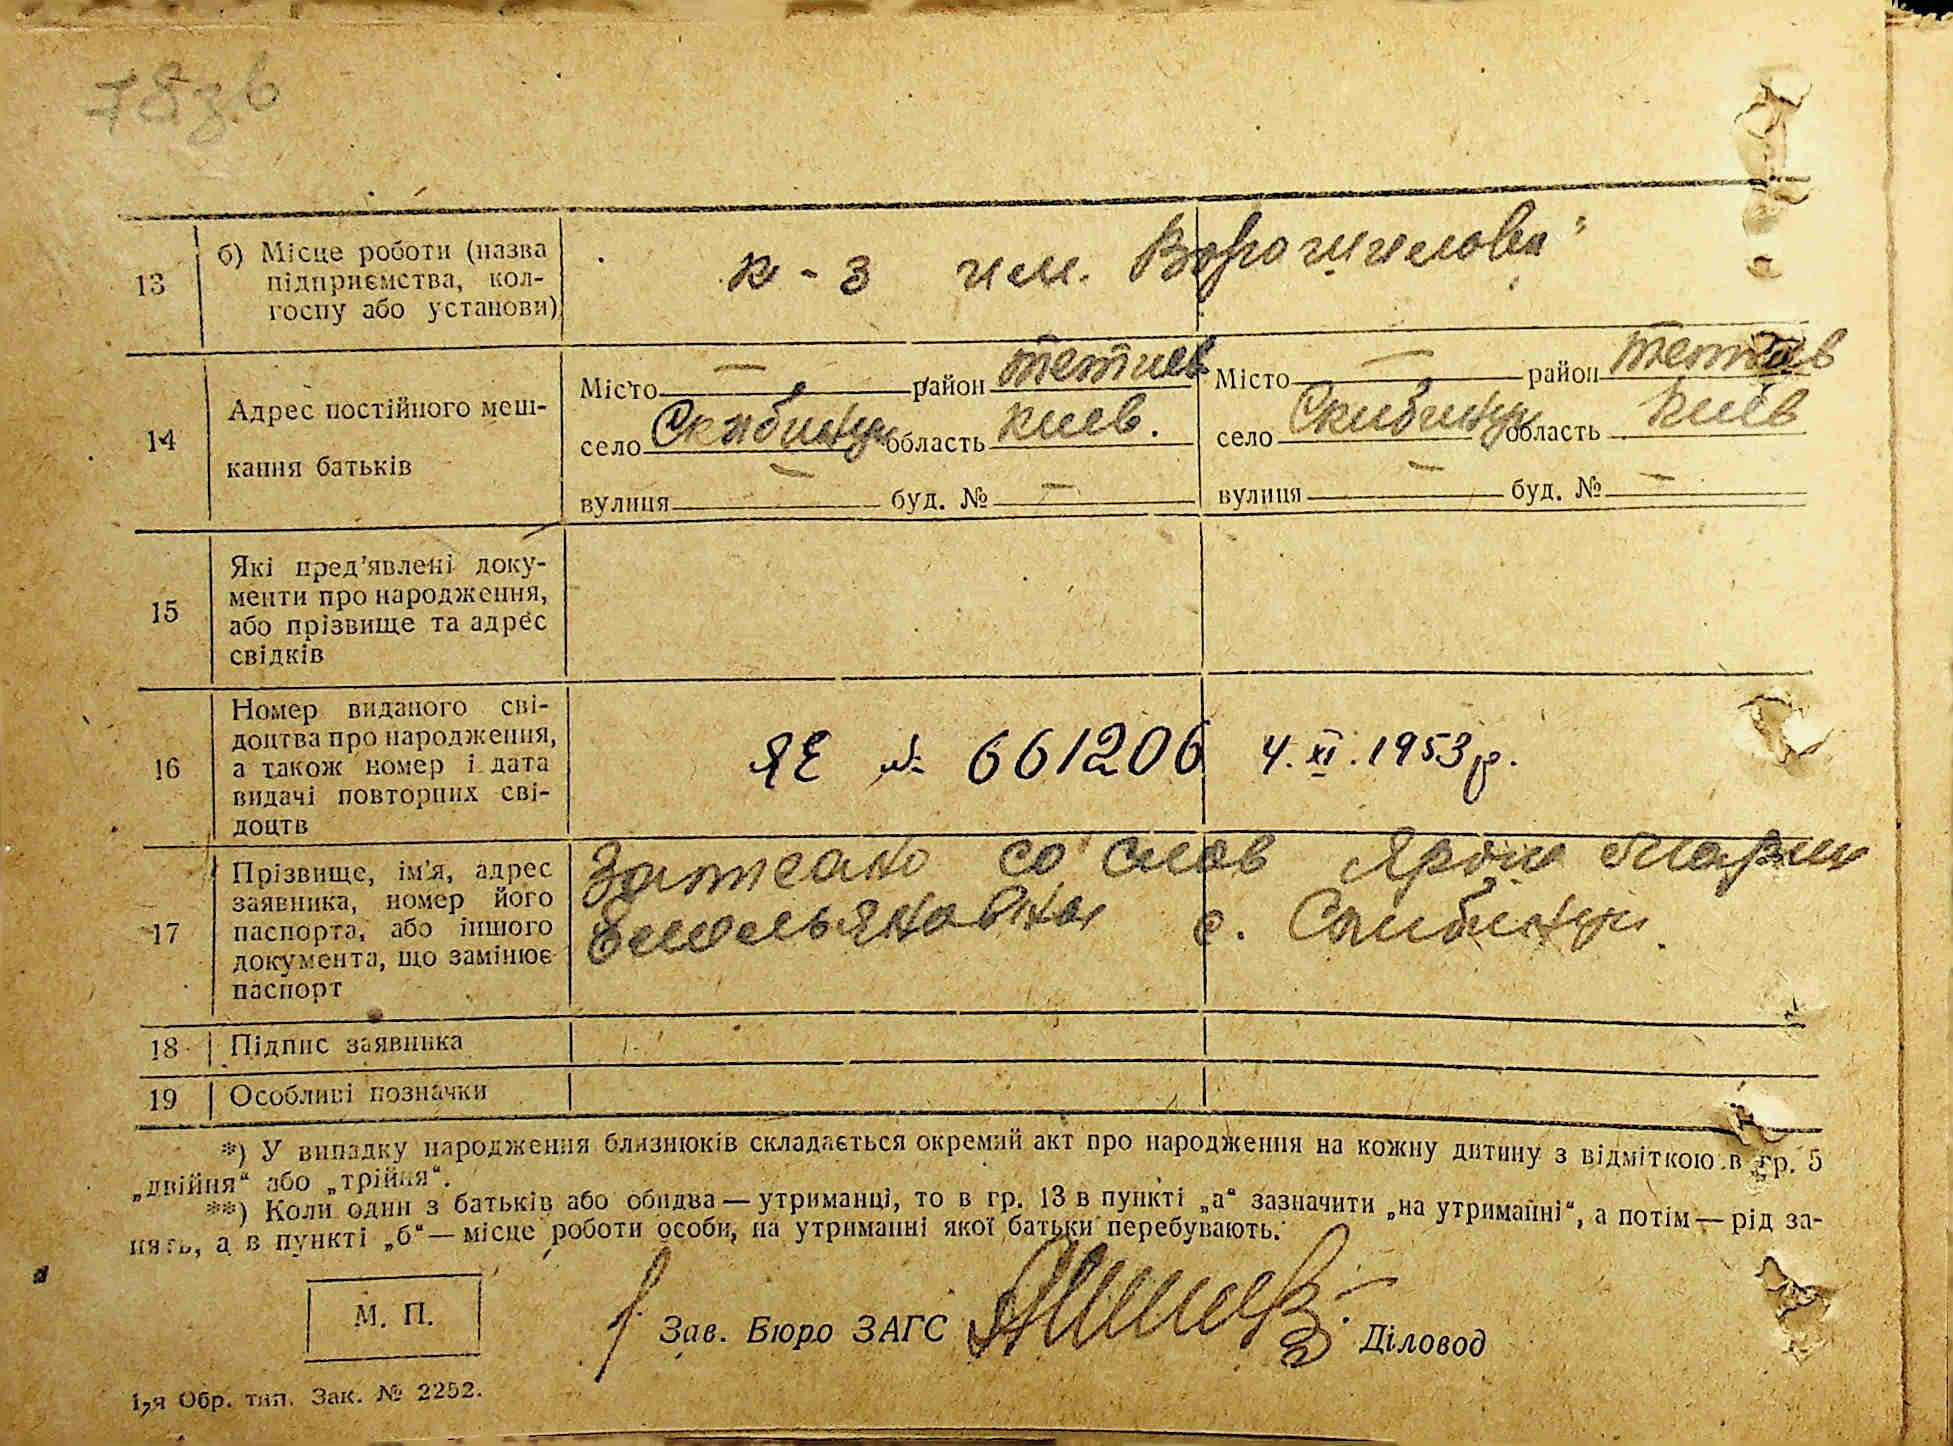 78зв
13
б) Місце роботи (назва
підприємства, кол-
госпу або установи)
к-з им. Ворошилова"
14
Адрес постійного меш-
кання батьків
Місто — район Тетиев
село Скибинцы область Киев.
вулиця — буд. № —
Місто — район Тетиев
село Скибинцы область Киев
вулиця — буд. № —
15
Які пред'явлені доку-
менти про народження,
або прізвище та адрес
свідків
16
Номер виданого сві-
доцтва про народження,
а також номер і дата
видачі повторних сві-
доцтв
ЯЕ № 661206 4.XI.1953р.
17
Прізвище, ім'я, адрес
заявника, номер його
паспорта, або іншого
документа, що замінює
паспорт
Записано со слов Ярош Марии
Емельяновны с. Скибинцы.
18
Підпис заявника
19
Особливі позначки
*) У випадку народження близнюків складається окремий акт про народження на кожну дитину з відміткою в гр. 5
„двійня“ або „трійня“.
**) Коли один з батьків або обидва — утриманці, то в гр. 13 в пункті „а“ зазначити „на утриманні“, а потім — рід за-
нять, а в пункті „б“ — місце роботи особи, на утриманні якої батьки перебувають.
М. П.
Зав. Бюро ЗАГС
Діловод
1-я Обр. тип. Зак. № 2252.